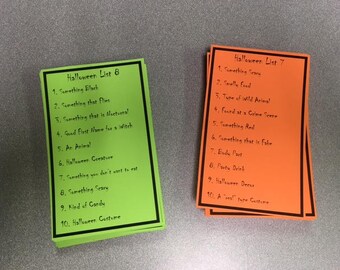 Halloween List 8
1. Something Black
2. Something that Flies
3. Something that is Nocturnal
4. Good First Name for a Witch
5. An Animal
6. Halloween Creature
7. Something you don't want to eat
8. Something Scary
9. Kind of Candy
10. Halloween Costume
Halloween List 7
1. Something Scary
2. Smelly Food
3. Type of Wild Animal
4. Found at a Crime Scene
5. Something Red
6. Something that is Fake
7. Body Part
8. Party Drink
9. Halloween Decor
10. A "evil" type Costume